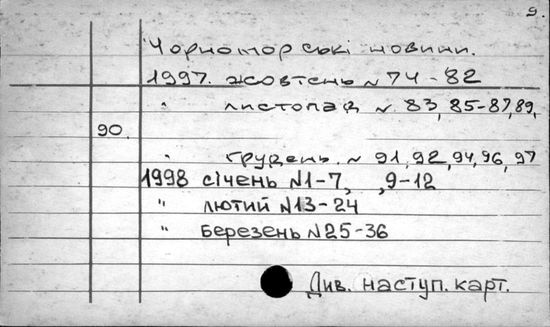 9.
Чорноморські новини.
1997. жовтень N 74-82
" листопад N 83, 85-87, 89,
90.
" грудень. N 91, 92, 94, 96, 97
1998 січень N1-7, ,9-12
" лютий N13-24
" березень N25-36
Див. наступ. карт.